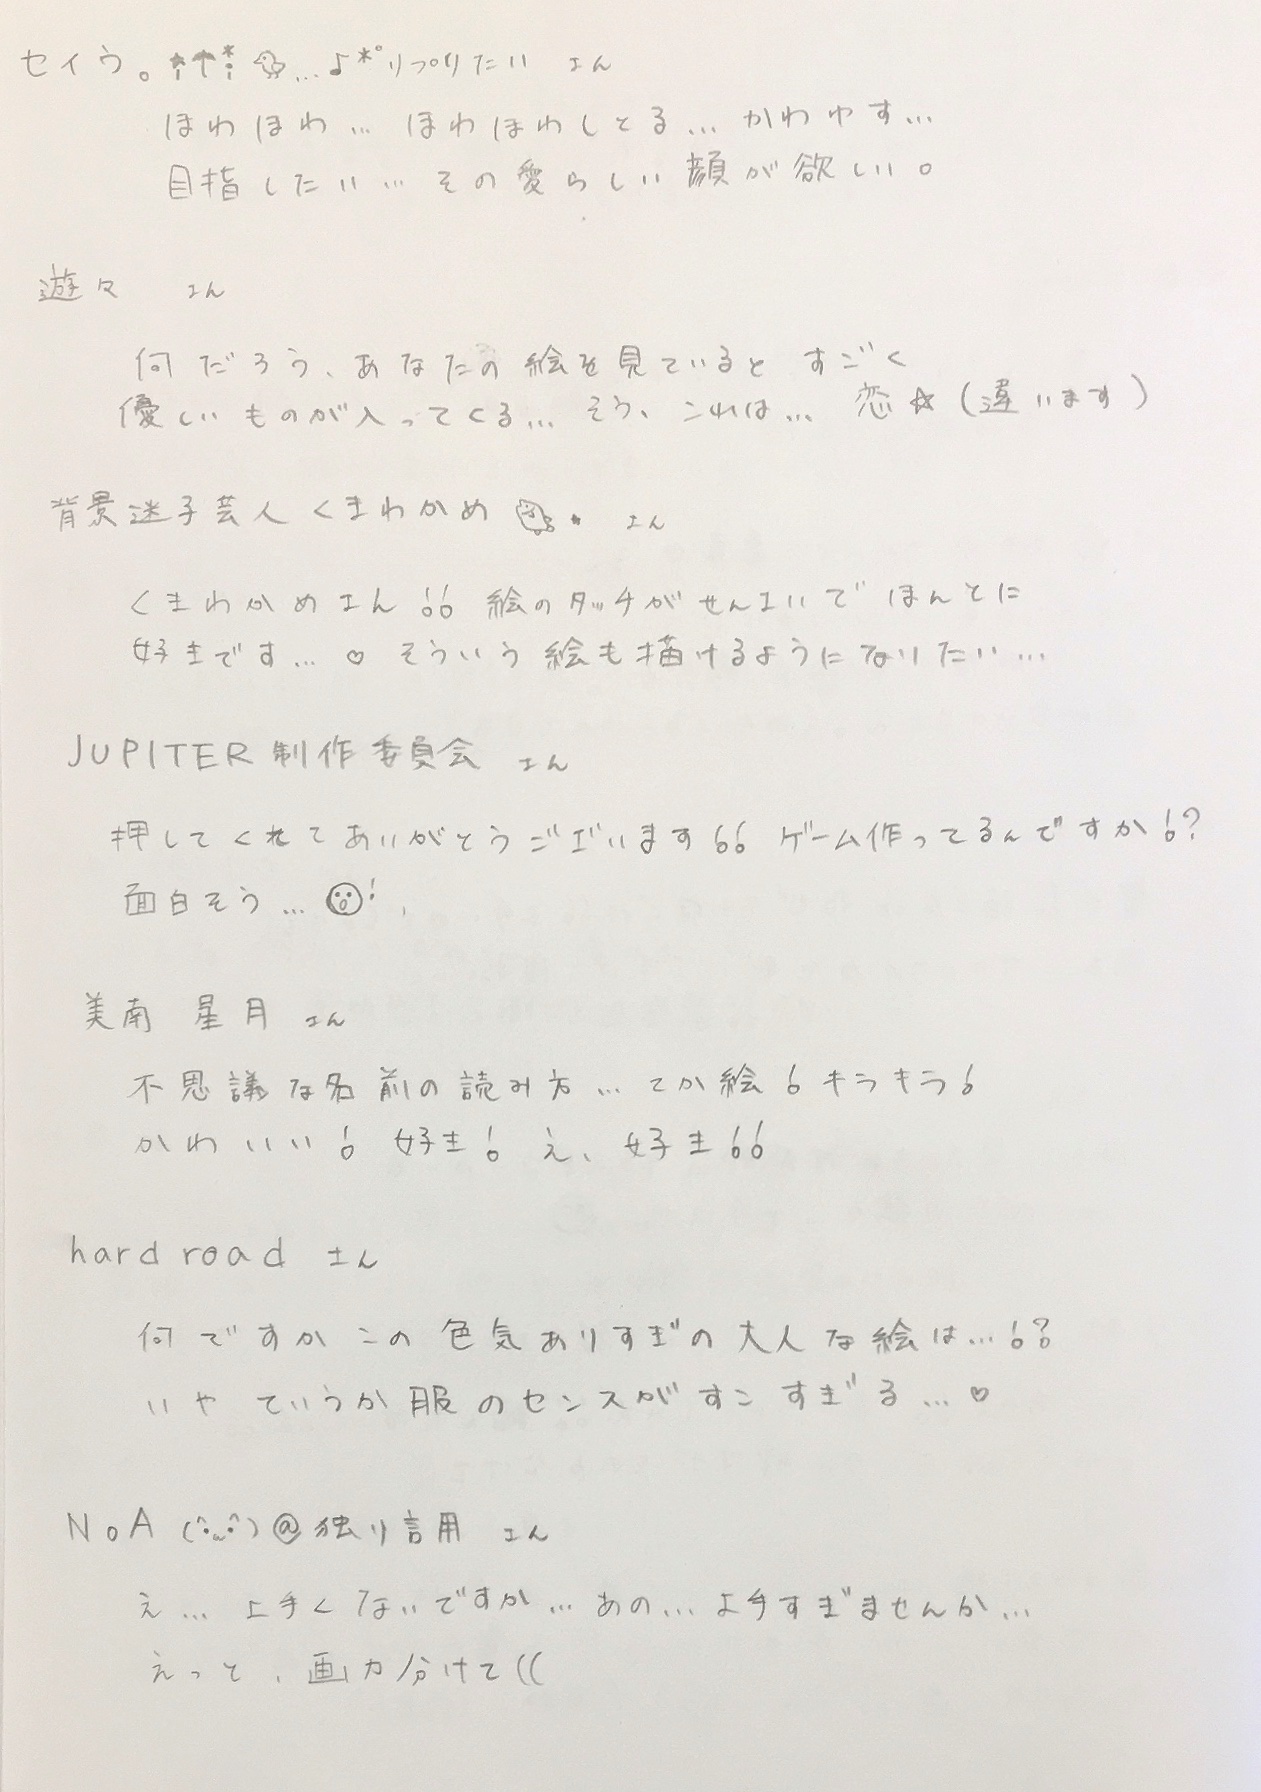 セイウ。🌴☂*🐤...♪*°りぷりたい さん
ほわほわ... ほわほわしとる... かわゆす...
目指したい... その愛らしい顔が欲しい。
遊々 さん
何だろう、あなたの絵を見ていると すごく
優しいものが入ってくる... そう、これは... 恋☆(違います)
背景迷子芸人くまわかめ さん
くまわかめさん!! 絵のタッチがせんさいで ほんとに
好きです...♡ そういう絵も描けるようになりたい...
JUPITER制作委員会 さん
押してくれてありがとうございます!! ゲーム作ってるんですか!?
面白そう...😮!
美南 星月 さん
不思議な名前の読み方... てか絵!キラキラ!
かわいい! 好き! え、好き!!
hard road さん
何ですかこの色気ありすぎの大人な絵は...!?
いや ていうか服のセンスがすこすぎる...♡
NoA (^ω^)@独り言用 さん
え... 上手くないですか... あの... 上手すぎませんか...
えっと、画力分けて((